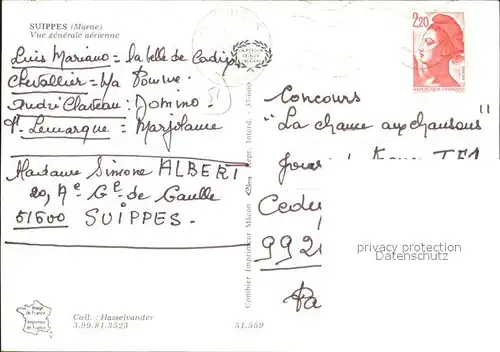 SUIPPES (Marne)
Vue générale aérienne
Luis Mariano = la belle de Cadix
Chevallier = Ma Pomme.
André Claveau : Domino.
F. Lemarque = Marjolaine
Madame Simone ALBERT
20, Ae Gl de Gaulle
51600 SUIPPES.
Combier Imprimeur Mâcon
Repr. Interd.
2,20
REPUBLIQUE FRANÇAISE
Concours
"La chance aux chansons"
Cede
992
Pa
privacy protection
Datenschutz
Image de France
Imprimée en France
Coll. : Hasselvander
3.99.81.3523
51.559